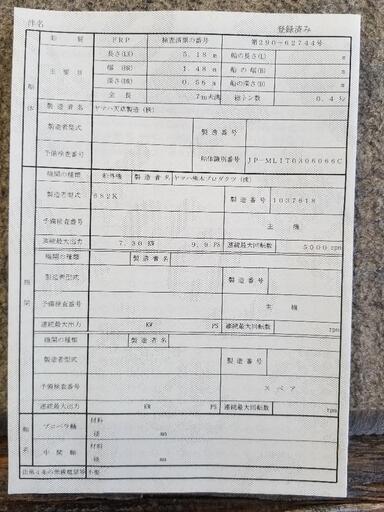 件名 登録済み
船質 FRP 検査済票の番号 第290-62744号
船体 主要目 長さ(LR) 5.18m 船の長さ(L) m
幅(BR) 1.48m 船の幅(B) m
深さ(DR) 0.56m 船の深さ(D) m
全長 7m未満 総トン数 0.4
製造者 ヤマハ天草製造(株)
製造者型式 製造番号
予備検査番号 船体識別番号 JP-MLIT0306066C
機関の種類 船外機 製造者名 ヤマハ熊本プロダクツ(株)
製造者型式 682K 製造番号 1037618
予備検査番号 主機
連続最大出力 7.30KW 9.9PS 連続最大回転数 5000rpm
機関 機関の種類 製造者名
製造者型式 製造番号
予備検査番号 主機
連続最大出力 KW PS 連続最大回転数 rpm
機関の種類 製造者名
製造者型式 製造番号
予備検査番号 スペア
連続最大出力 KW PS 連続最大回転数 rpm
軸系 プロペラ軸 材料
径 mm
中間軸 材料
径 mm
法第4条の無線電信等 不要